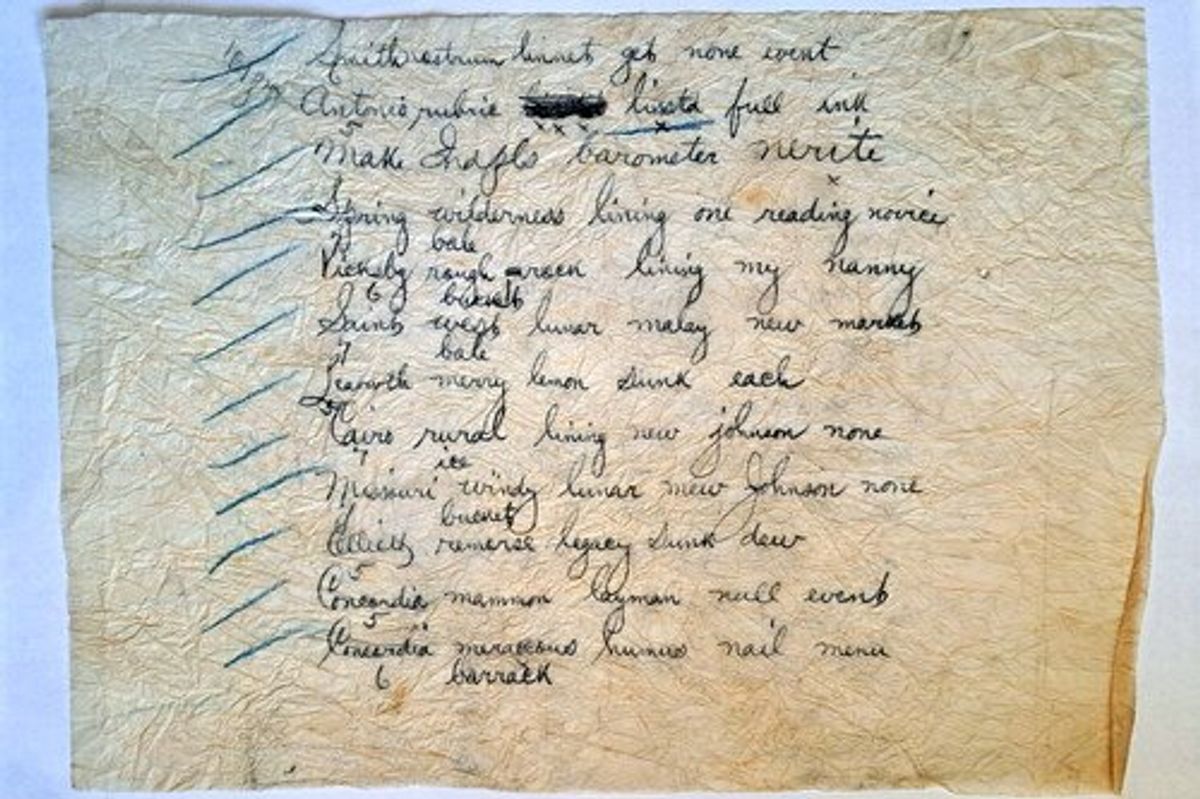 Smith nostrum linnet get none event
Antonio rubric lissta full ink
5
Make Indpls barometer nerite
Spring wilderness lining one reading novice
7 bale
Vicksbg rough rack lining my nanny
6 bucket
Saint west lunar malay new market
7 bale
Leawrth merry lemon sunk each
Cairo rural lining new johnson none
7 ice
Missouri windy lunar mew Johnson none
bucket
Elliott removal legacy sunk dew
5
Concordia mammon layman null event
5
Concordia meraccous humus nail menu
6 barrack